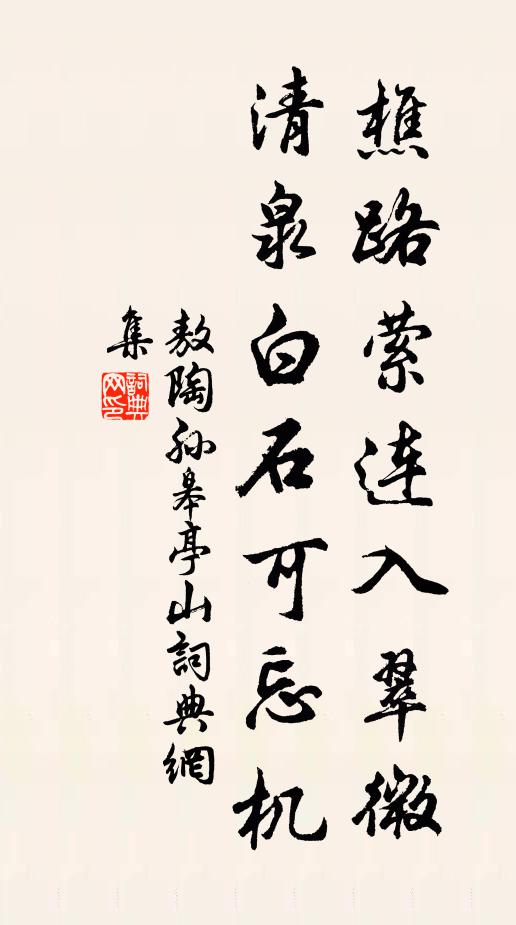 樵路萦连入翠微
清泉白石可忘机
敖陶孙皋亭山詞典網
集
詞典
网印